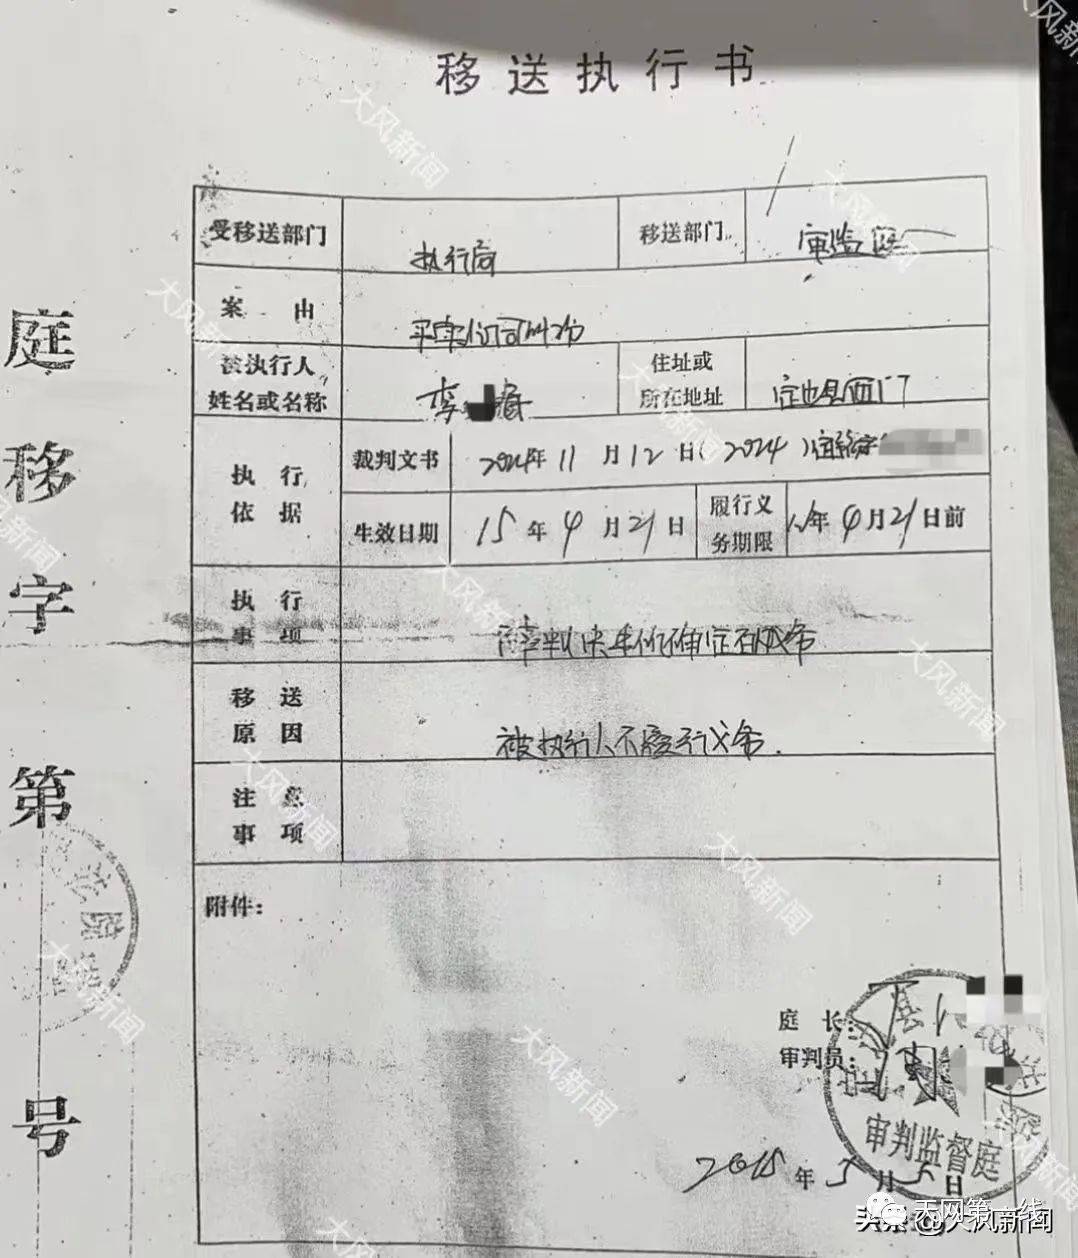 移送执行书
庭移字第 号
受移送部门 执行局 移送部门 审监庭
案由
被执行人姓名或名称 李 住址或所在地址 县西门
执行依据 裁判文书 年11月12日(2024)
生效日期 15年4月21日 履行义务期限 年4月21日前
执行事项 判决 确定 义务
移送原因 被执行人不履行义务.
注意事项
附件:
庭长:
审判员:
审判监督庭
2015年5月5日
大风新闻
天网第一线
头条@大风新闻